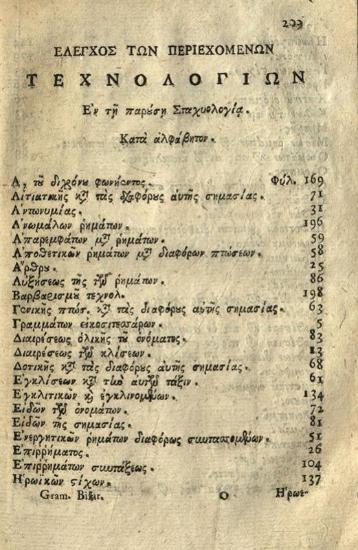 ΕΛΕΓΧΟΣ ΤΩΝ ΠΕΡΙΕΧΟΜΕΝΩΝ
ΤΕΧΝΟΛΟΓΙΩΝ
Ἐν τῇ παρούσῃ Σταχυολογίᾳ.
Κατὰ ἀλφάβητον.
Α, τοῦ διχρόνου φωνήεντος. Φύλ. 169
Αἰτιατικῆς κατὰ τὰς διαφόρους αὐτῆς σημασίας. 71
Ἀντωνυμίας. 31
Ἀνωμάλων ῥημάτων. 196
Ἀπαρεμφάτων μετὰ ῥημάτων. 59
Ἀποθετικῶν ῥημάτων μετὰ διαφόρων πτώσεων. 58
Ἄρθρου. 25
Αὐξήσεως τῆς τῶν ῥημάτων. 86
Βαρβαρισμοῦ τεχνολ. 198
Γενικῆς πτώσ. κατὰ τὰς διαφόρους αὐτῆς σημασίας. 63
Γραμμάτων εἰκοσιτεσσάρων. 5
Διαιρέσεως ὁλικῆς τοῦ ὀνόματος. 83
Διαιρέσεως τῶν κλίσεων. 13
Δοτικῆς κατὰ τὰς διαφόρους αὐτῆς σημασίας. 68
Ἐγκλίσεων κατὰ τὴν αὐτῶν τάξιν. 61
Ἐγκλιτικῶν καὶ ἐγκλινομένων. 134
Εἰδῶν τῶν ὀνομάτων. 72
Εἰδῶν τῆς σημασίας. 81
Ἐνεργητικῶν ῥημάτων διαφόρως συντασσομένων. 51
Ἐπιῤῥήματος. 26
Ἐπιῤῥημάτων συντάξεως. 104
Ἡρωϊκῶν στίχων. 137
Gram. Bizar. O Ἡρωε-